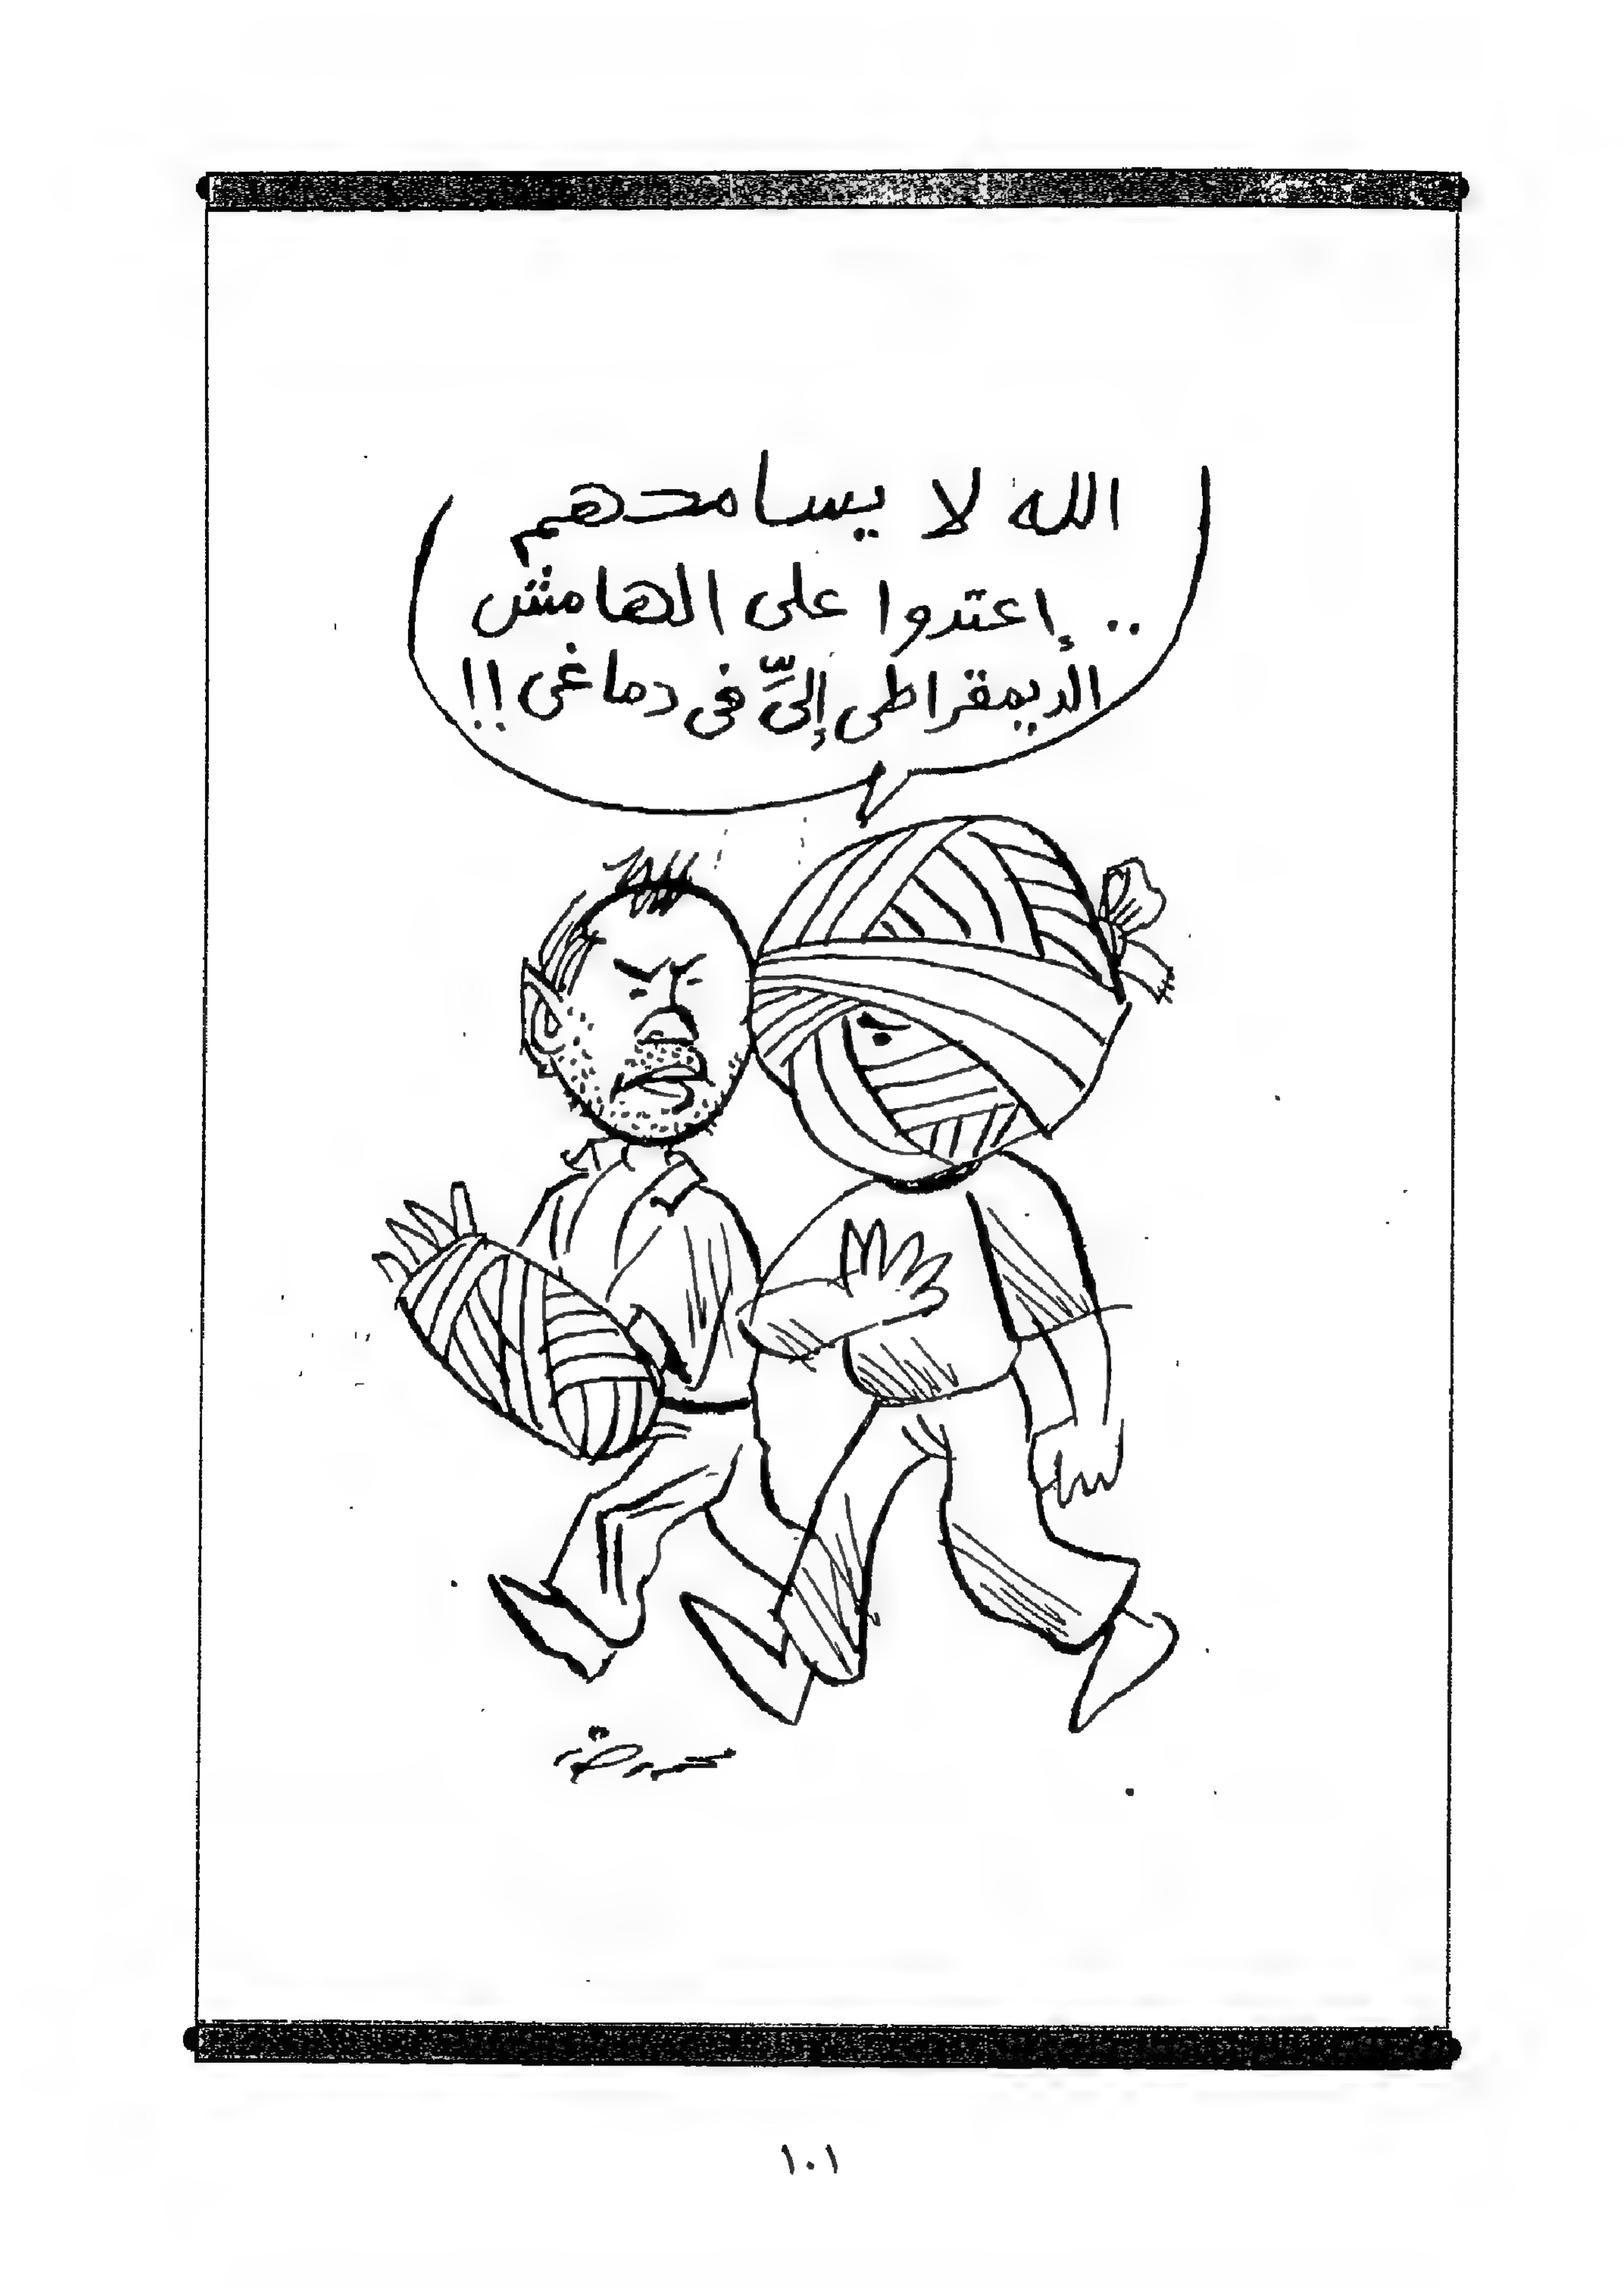 الله لا يسامحهم
.. إعتدوا على الهامش
الديمقراطى إلىِّ فى دماغى!!
١٠١